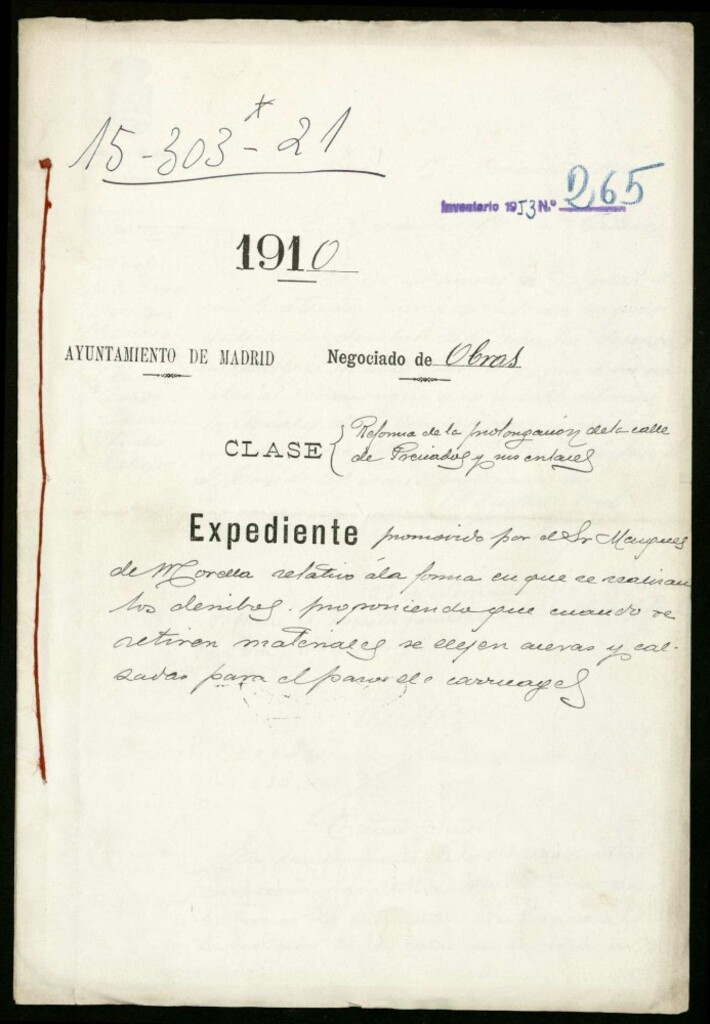 15-303-21
x
Inventario 1953 N.º 265
1910
AYUNTAMIENTO DE MADRID Negociado de Obras
CLASE { Reforma de la prolongación de la calle
de Preciados y sus enlaces
Expediente promovido por el Sr Marques
de Morella relativo á la forma en que se realizan
los derribos. proponiendo que cuando se
retiren materiales se dejen aceras y cal-
zadas para el paso de carruages